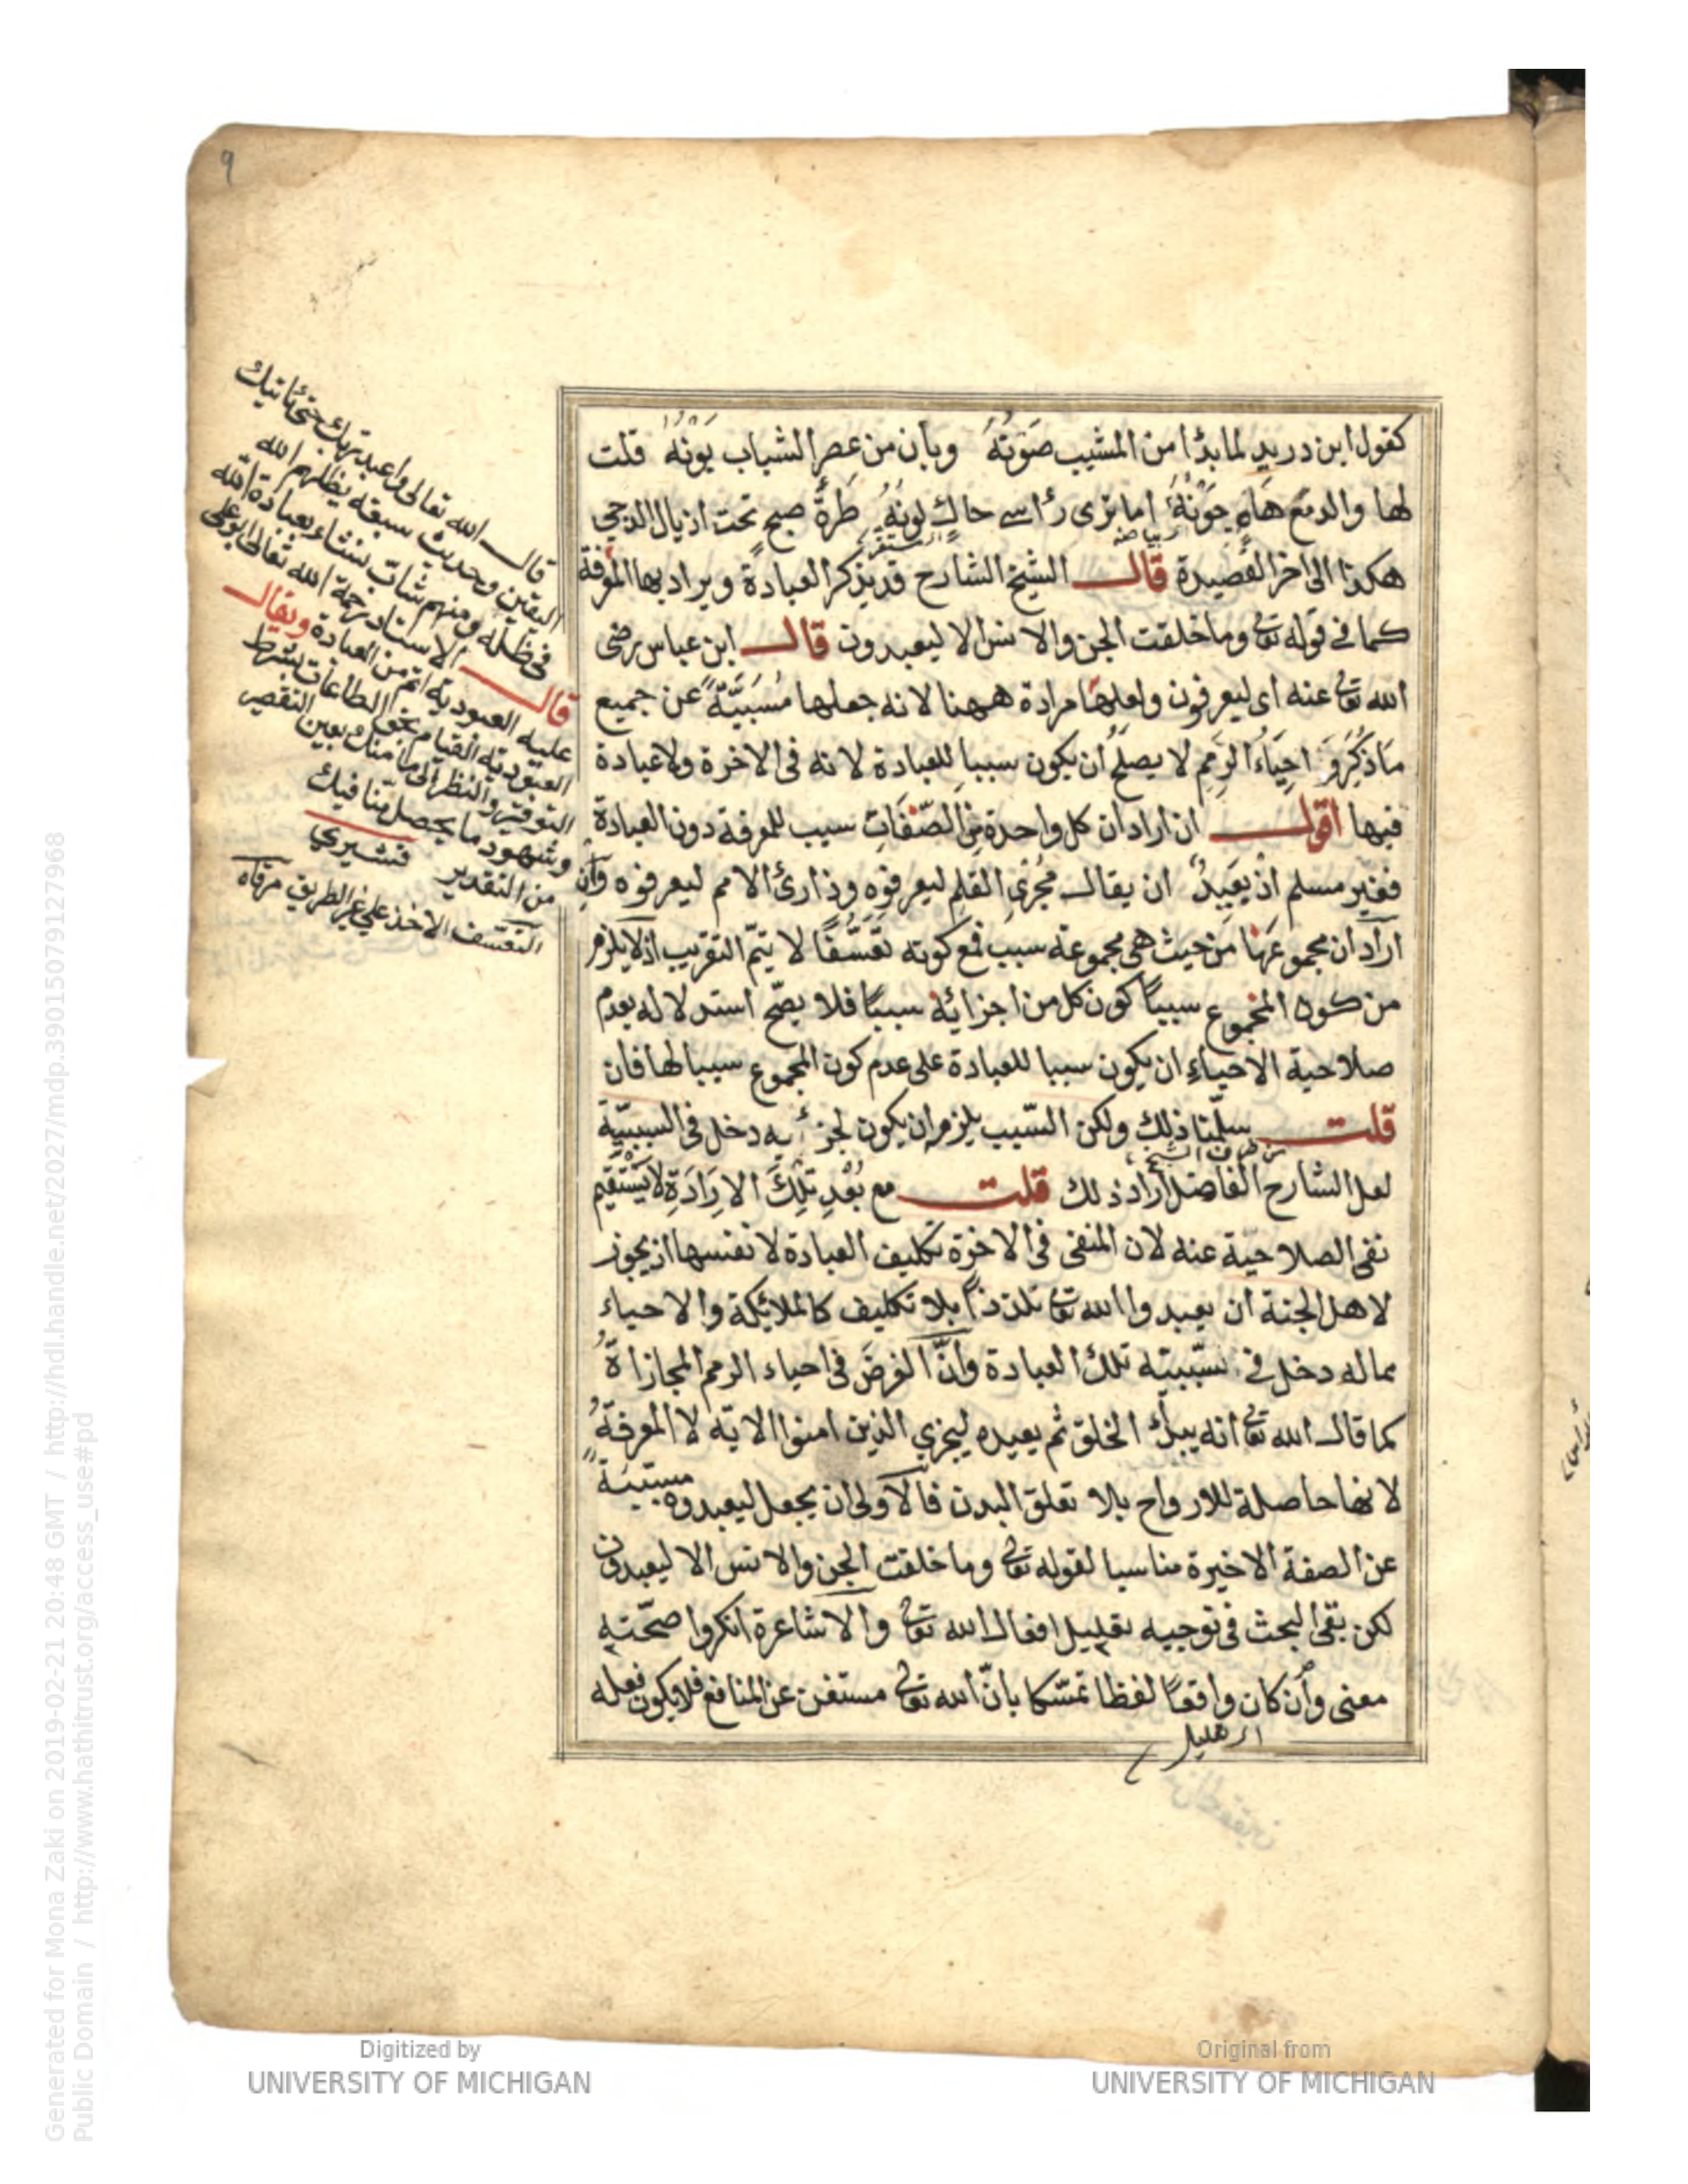 9
كقول ابن دريد لما بدا من المشيب صَوْنَهُ وبان من عصر الشباب بَوْنُهُ قلت
لها والدمع هام جَوْنُهُ اما ترى رأسى حاكى لونُهُ طرةَ صبح تحت اذيال الدجى
هكذا الى اخر القصيدة قال الشيخ الشارح قد يذكر العبادة ويراد بها المعرفة
كما في قوله تعا وما خلقت الجن والانس الا ليعبدون قال ابن عباس رضى
الله تعا عنه اى ليعرفون ولعلها مرادة ههنا لانه جعلها مُسَبَّبَةً عن جميع
ماذكر و احياء الرمم لا يصلح أن يكون سببا للعبادة لانه فى الاخرة ولا عبادة
فيها اقول ان اراد ان كل واحدة من الصّفات سبب للمعرفة دون العبادة
فغير مسلم اذ يَبعِدُ ان يقال مُجْرى القلم ليعرفوه وذارئ الامم ليعرفوه وان
اراد ان مجموعها من حيث هى مجموعة سبب فمع كونه تعسّفًا لا يتمّ التقريب اذ لا يلزم
من كون المجموع سببًا كون كل من اجزائه سببًا فلا يصّح استدلاله بعدم
صلاحية الاحياء ان يكون سببا للعبادة على عدم كون المجموع سببا لها فان
قلت سلّمنا ذلك ولكن السّبب يلزم ان يكون لجزئيه دخل فى السببيّة
لعل الشارح الفاضل أراد ذلك قلت مع بُعْدِ تِلْكَ الاِرَادَةِ لَا يَسْتَقِيم
نفى الصلاحية عنه لان المنفى فى الاخرة تكليف العبادة لا نفسها اذ يجوز
لاهل الجنة ان يعبدوا الله تعا تلذذًا بلا تكليف كالملائكة والاحياء
مماله دخل في سببيته تلك العبادة وانّ الغرض فى احياء الرمم المجازاةُ
كما قال الله تعا انه يبدؤ الخلق ثم يعيده ليجزي الذين امنوا الاية لا المعرفةُ
لانها حاصلة للارواح بلا تعلق البدن فالاولى ان يجعل ليعبدوه مسببةً
عن الصفة الاخيرة مناسبا لقوله تعا وما خلقت الجن والانس الا ليعبدون
لكن بقى البحث فى توجيه تعليل افعال الله تعا والاشاعرة انكروا صحّته
معنى وأن كان واقعًا لفظا تمسّكا بانّ الله تعا مستغن عن المنافع فلا يكون فعله
قال الله تعالى واعبد ربك حتى يأتيك
اليقين وحديث سبعة يظلهم الله
فى ظله ومنهم شابّ نشاء بعبادة الله
قال الاستاد رحمة الله تعالى ابو على
عليه العبودية اتم من العبادة ويقال
العبودية القيام بحق الطاعات بشرط
التوقير والنظر الى ما منك بعين التقصير
وشهود ما يحصل منا فيك
من التقدير قشيرى
التعسف الاخذ على غير الطريق مرقاه
Digitized by
UNIVERSITY OF MICHIGAN
Original from
UNIVERSITY OF MICHIGAN
Generated for Mona Zaki on 2019-02-21 20:48 GMT / http://hdl.handle.net/2027/mdp.39015079127968
Public Domain / http://www.hathitrust.org/access_use#pd